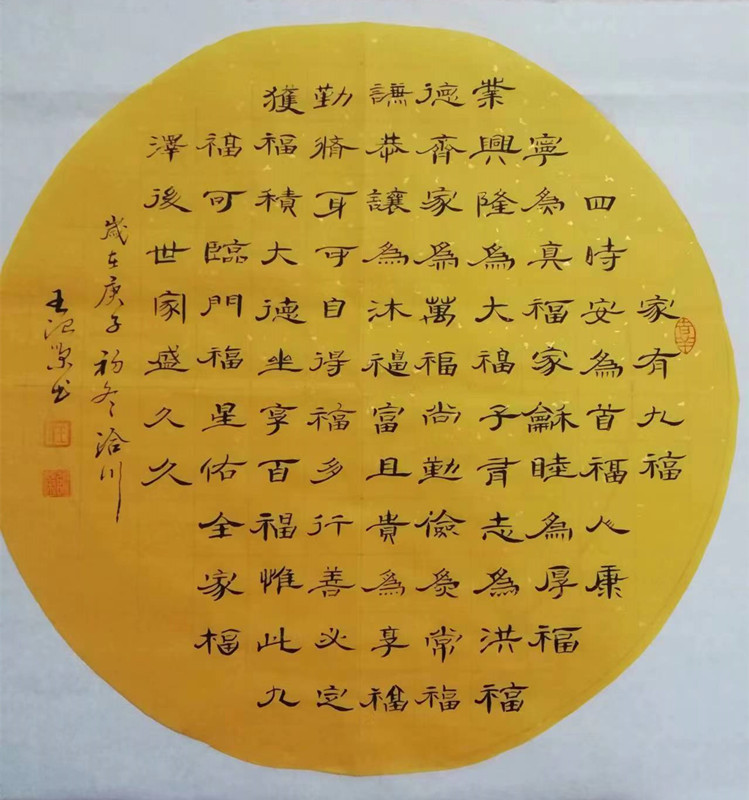 家有九福
四時安為首福人康
寧為真福家龢睦為厚福
業興隆為大福子有志為洪福
德齊家為萬福尚勤儉為常福
謙恭讓為沐福富且貴為享福
勤脩身可自得福多行善必定
獲福積大德坐享百福惟此九
福可臨門福星佑全家福
澤後世家盛久久
歲在庚子初冬洽川
王